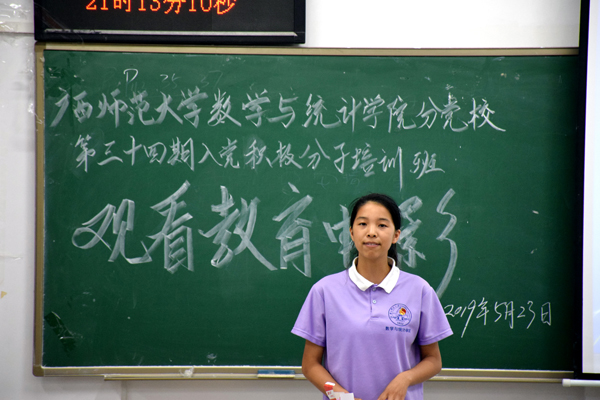 21时13分10秒
广西师范大学数学与统计学院分党校
第三十四期入党积极分子培训班
观看教育电影
2019年5月23日